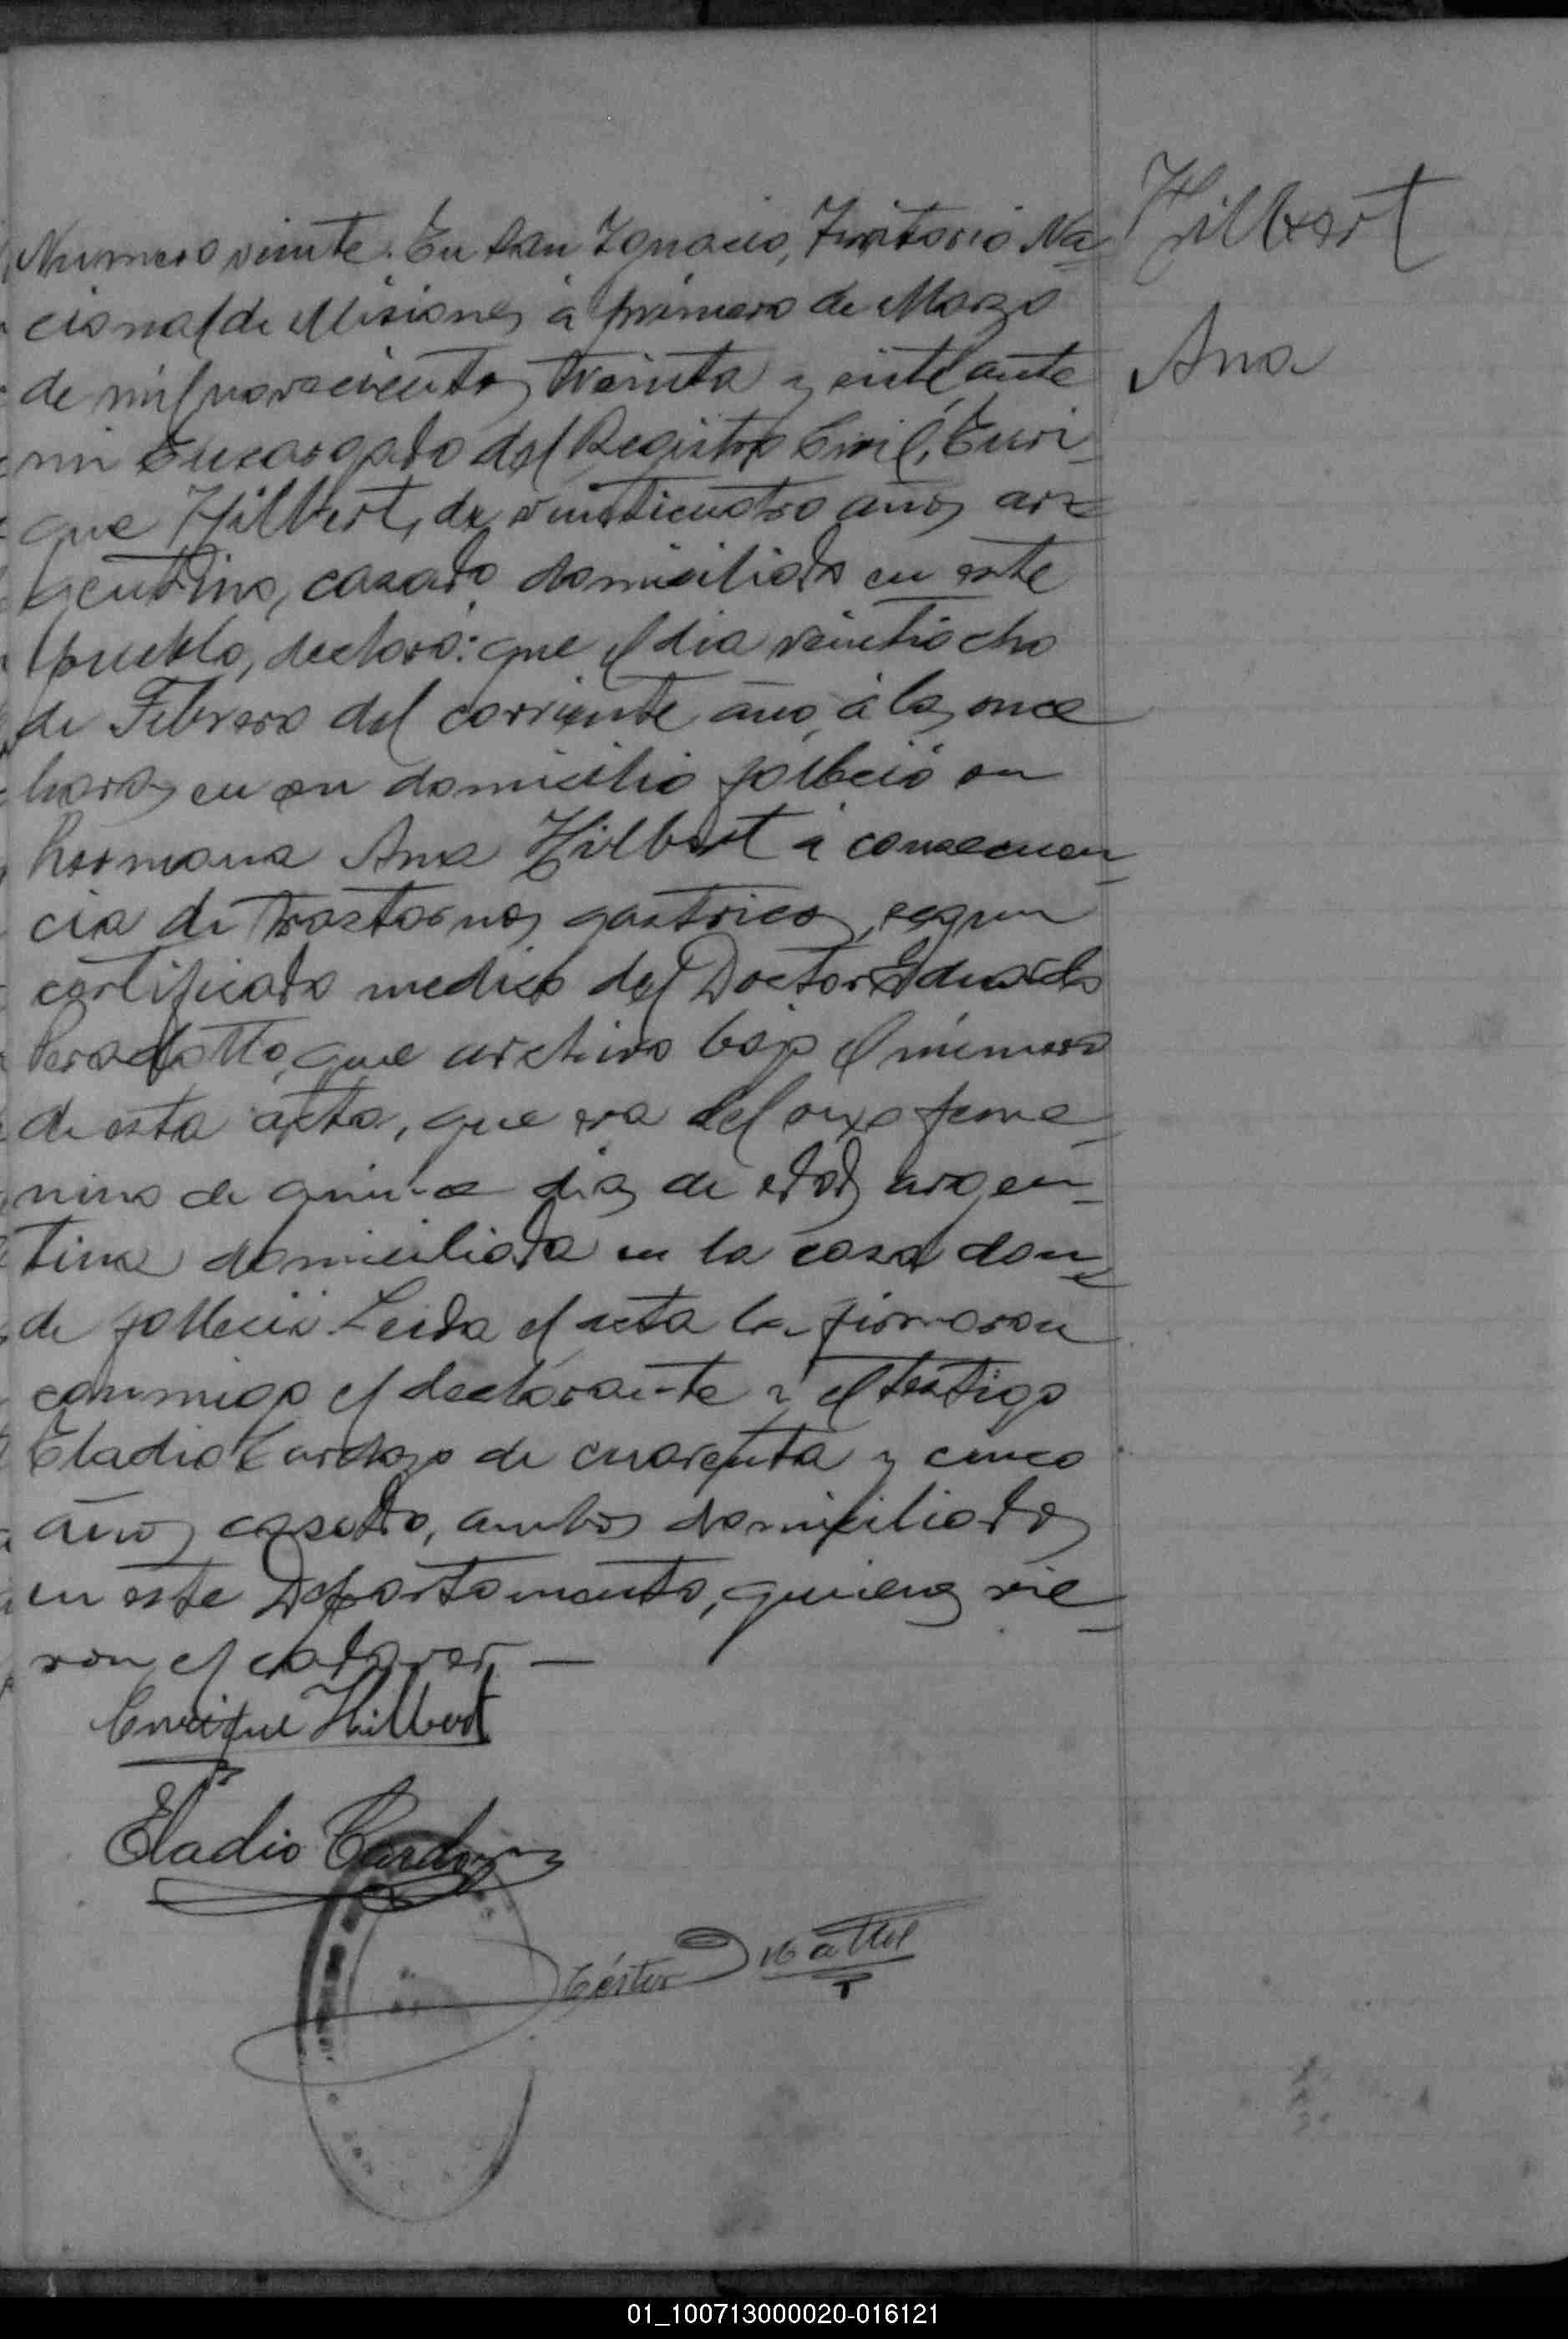 Numero veinte. En San Ignacio, Territorio Na-
cional de Misiones, a primero de Marzo
de mil novecientos treinta y siete, ante
mi Encargado del Registro Civil, Enri-
que Hilbert, de veinticuatro años, ar-
gentino, casado, domiciliado en este
pueblo, declaró: que el dia veintiocho
de Febrero del corriente año, a las once
horas, en su domicilio falleció su
hermana Ana Hilbert a consecuen-
cia de trastornos gastricos, segun
certificado medico del Doctor Eduardo
que archivo bajo el número
de esta acta, que era del sexo feme-
nino de quince dias de edad, argen-
tina domiciliada en la casa don-
de falleció. Leida el acta la firmaron
conmigo el declarante y el testigo
Eladio Cardozo de cuarenta y cinco
años, casado, ambos domiciliados
en este Departamento, quienes vie-
ron el cadaver. —
Enrique Hilbert
Eladio Cardozo
Hilbert
Ana
01_100713000020-016121